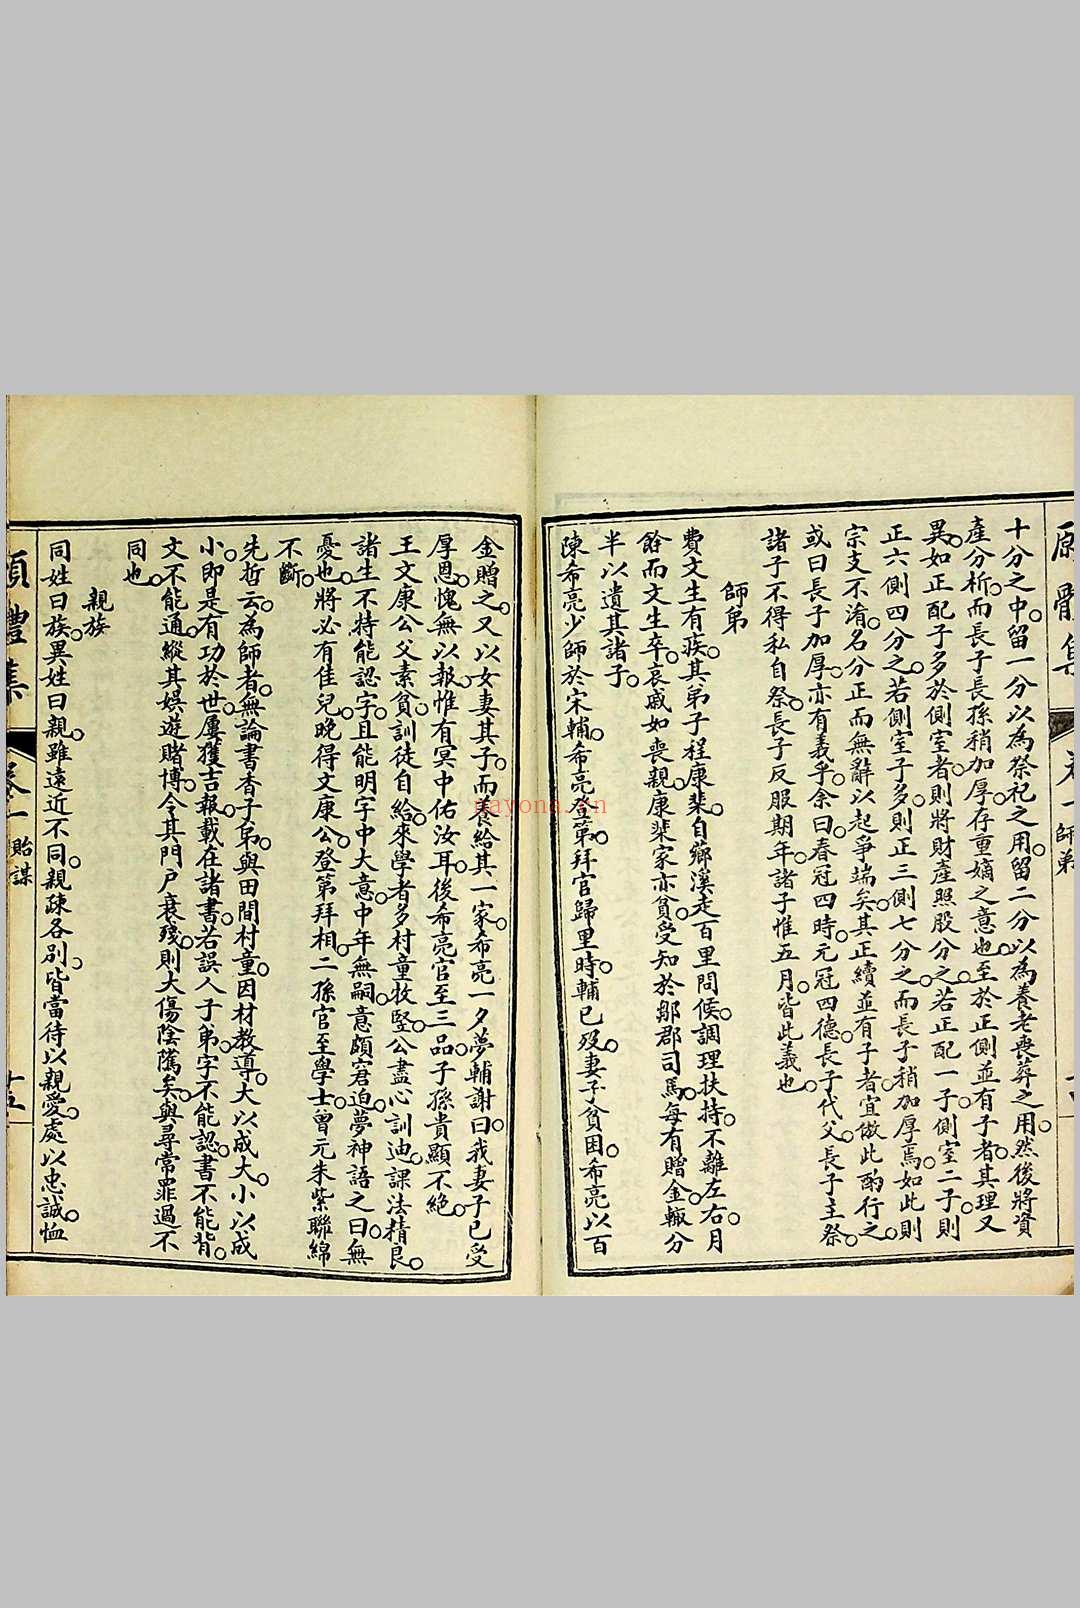 十分之中。留一分以為祭祀之用。留二分以為養老喪葬之用。然後將資
產分析。而長子長孫稍加厚。存重嫡之意也。至於正側並有子者。其理又
異。如正配子多於側室者。則將財產照股分之。若正配一子。側室二子。則
正六側四分之。若側室子多。則正三側七分之。而長子稍加厚焉。如此則
宗支不淆。名分正而無辭以起爭端矣。其正續並有子者。宜倣此酌行之。
或曰長子加厚。亦有義乎。余曰。春冠四時。元冠四德。長子代父。長子主祭。
諸子不得私自祭。長子反服期年。諸子惟五月。皆此義也。
師弟
費文生有疾。其弟子程康棐。自薌溪走百里問候。調理扶持。不離左右。月
餘而文生卒。哀戚如喪親。康棐家亦貧。受知於鄒郡司馬。每有贈金。輙分
半以遺其諸子。
陳希亮少師於宋輔。希亮登第。拜官歸里。時輔已歿。妻子貧困。希亮以百
師弟
金贈之。又以女妻其子。而養給其一家。希亮一夕夢輔謝曰。我妻子已受
厚恩。愧無以報。惟有冥中佑汝耳。後希亮官至三品。子孫貴顯不絕。
王文康公父素貧。訓徒自給。來學者多村童牧豎。公盡心訓迪。課法精良。
諸生不特能認字。且能明字中大意。中年無嗣。意頗窘迫。夢神語之曰。無
憂也。將必有佳兒。晚得文康公。登第拜相。二孫官至學士。曾元朱紫聯綿
不斷。
先哲云。為師者。無論書香子弟。與田間村童。因材教導。大以成大。小以成
小。即是有功於世。屢獲吉報。載在諸書。若誤人子弟。字不能認。書不能背。
文不能通。縱其娛遊賭博。令其門戶衰殘。則大傷陰隲矣。與尋常罪過不
同也。
親族
同姓曰族。異姓曰親。雖遠近不同。親疎各別。皆當待以親愛。處以忠誠。恤
卷一
貽謀
十五
nayona.cn